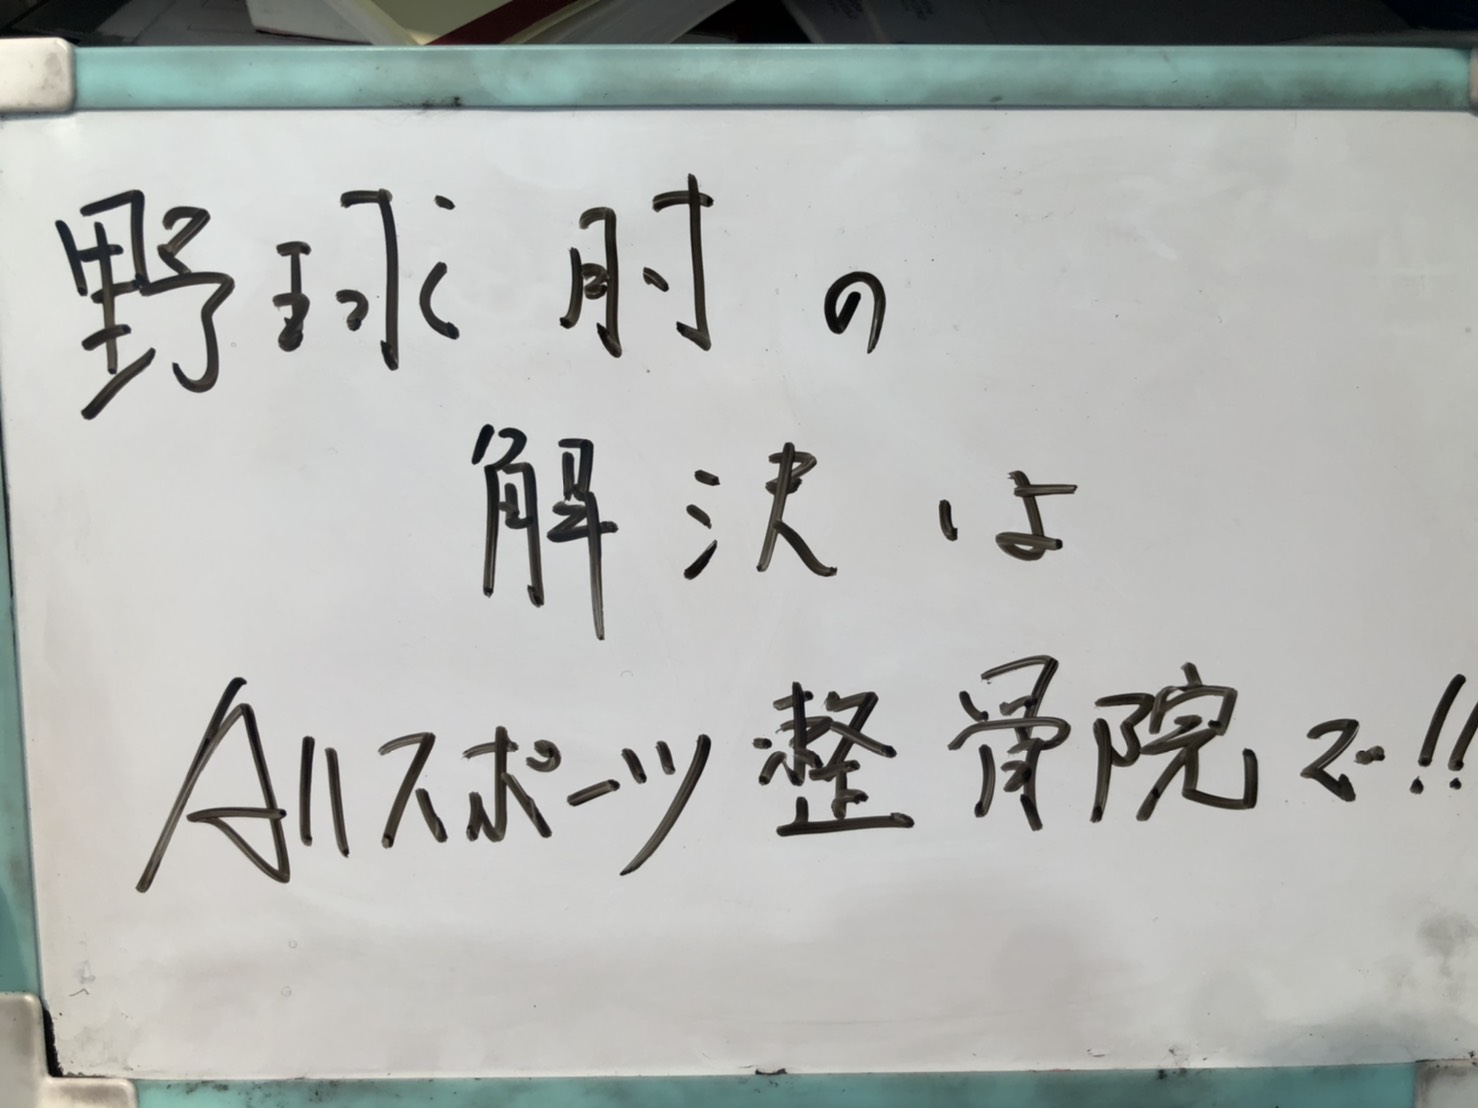 野球肘の
解決は
Allスポーツ整骨院で!!